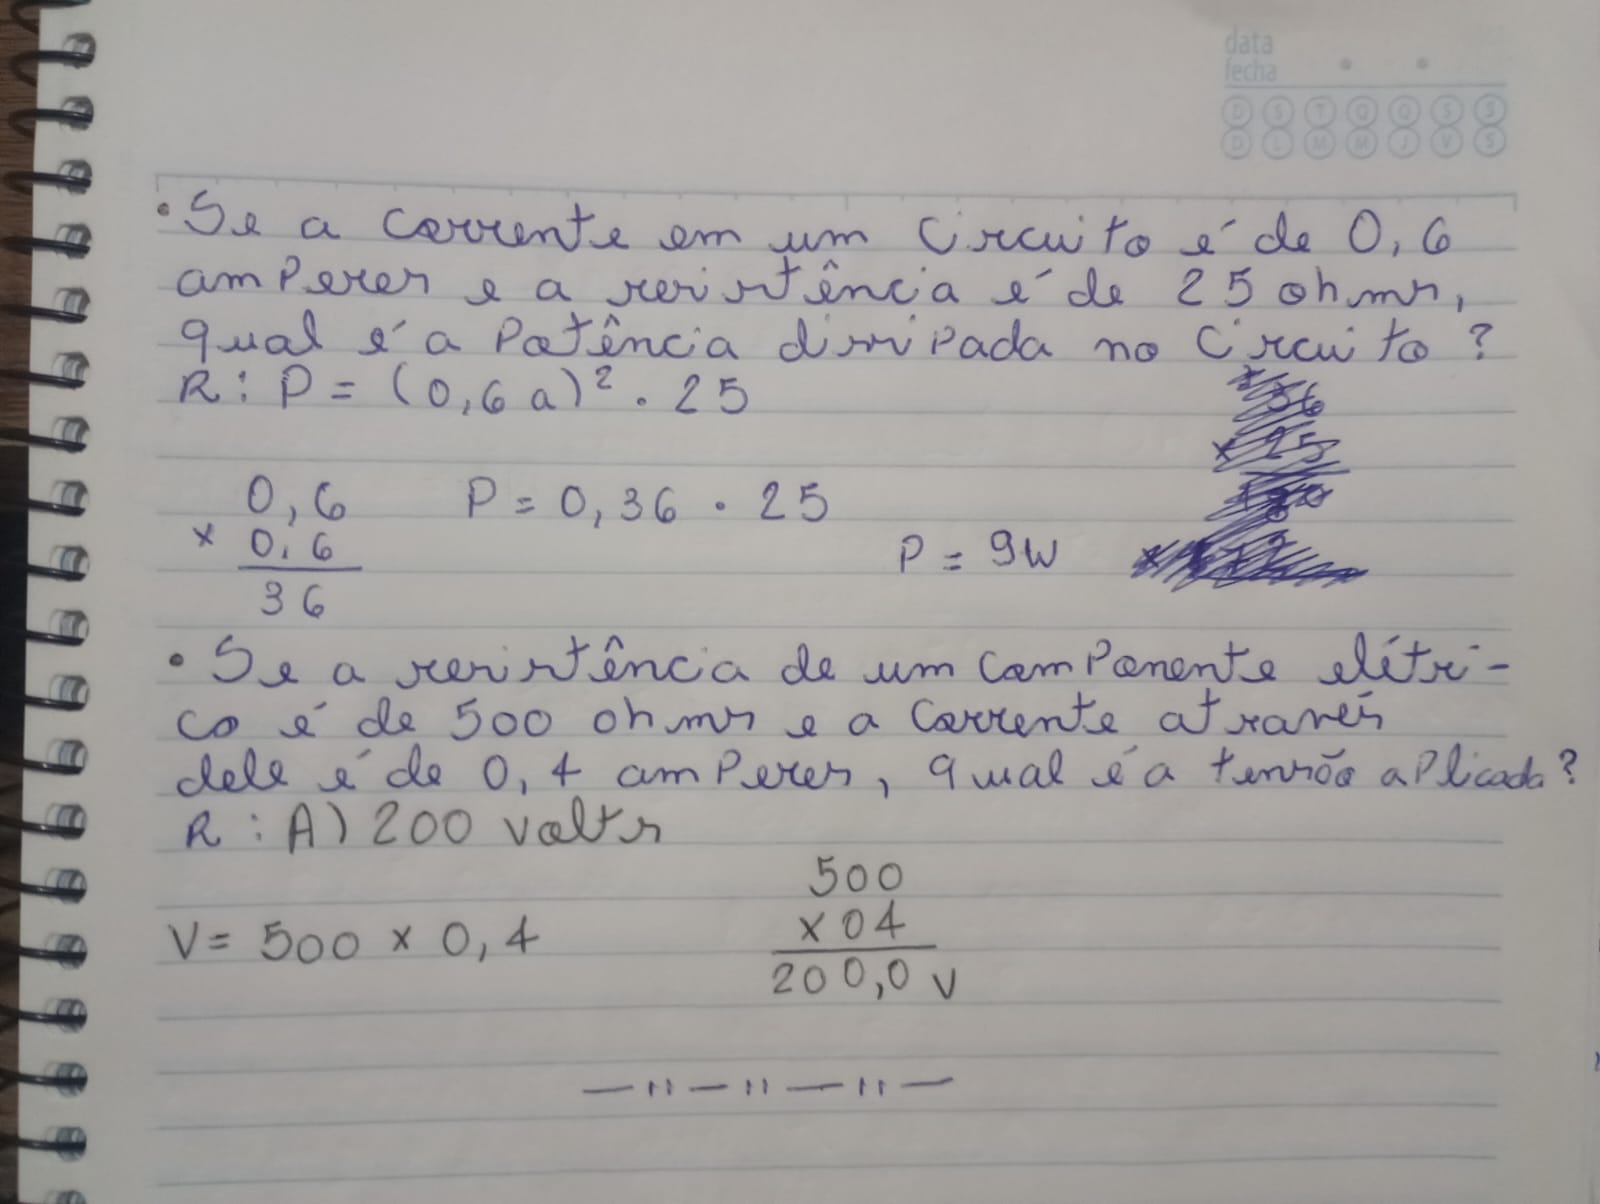 data
fecha
D S T Q Q S S
D L M M J V S
• Se a corrente em um circuito é de 0,6
amperes e a resistência é de 25 ohms,
qual é a potência dissipada no circuito?
R: P = (0,6 a)² . 25
0,6
x 0,6
36
P = 0,36 . 25
P = 9W
• Se a resistência de um componente elétri-
co é de 500 ohms e a corrente através
dele é de 0,4 amperes, qual é a tensão aplicada?
R: A) 200 volts
V = 500 x 0,4
500
x 04
200,0 v